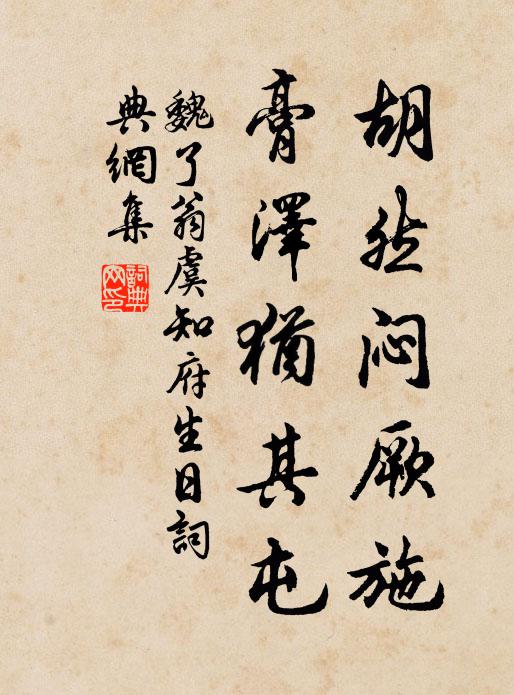 胡然闷厥施
膏澤猶其屯
魏了翁虞知府生日詞
典網集
詞典網印